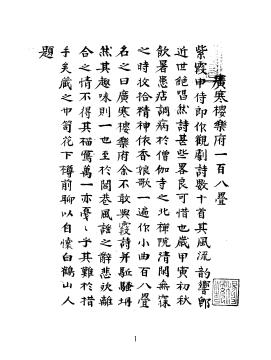 廣寒樓樂府一百八疊
紫霞申侍郎作觀劇詩數十首其風流韵響卽
近世絶唱然詩甚些畧良可惜也歲甲寅初秋
飮暑患痁調病於僧伽寺之北禪院淸閑無寐
之時收拾精神依香娘歌一遍作小曲百八疊
名之曰廣寒樓樂府余不敢與霞詩幷駈騷坍
然其趣味則一也至於閭巷風謠之辭悲欢離
合之情不得其描寫萬一亦憂憂乎其難於措
手矣蔵之巾笥花下樽前聊以自懷白鶴山人
題
1